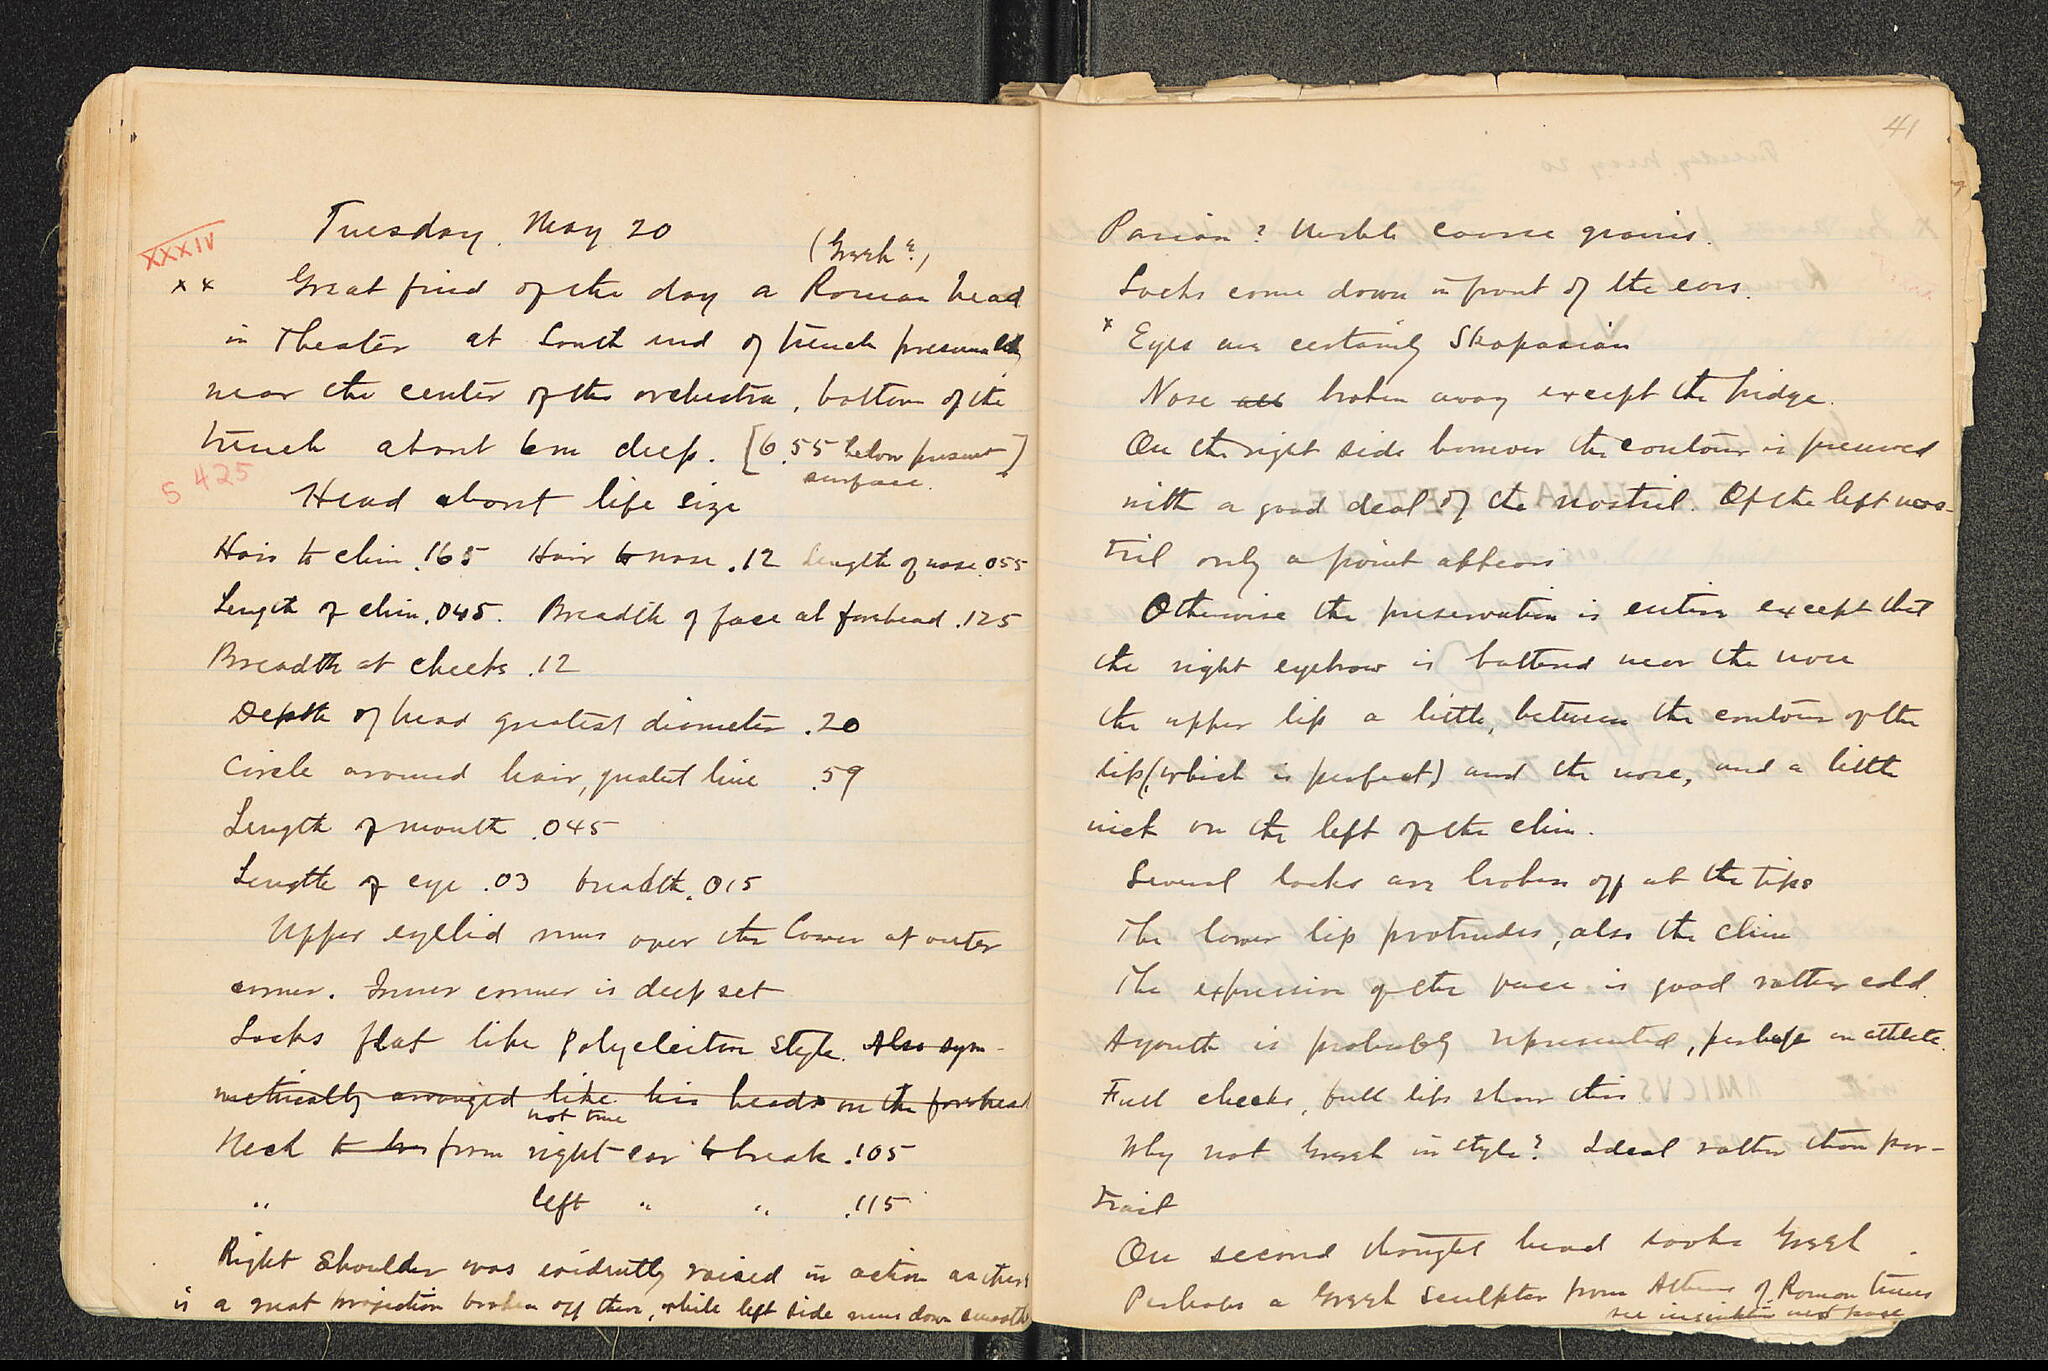 Tuesday, May 20
XXXIV
(Greek?)
x x Great find of the day a Roman head
in Theater at South end of trench presumably
near the center of the orchestra, bottom of the
trench about 6m deep. [6.55 below present
surface.]
S 425
Head about life size
Hair to chin .165 Hair to nose .12 Length of nose .055
Length of chin .045. Breadth of face at forehead .125
Breadth at cheeks .12
Depth of head greatest diameter .20
Circle around hair, greatest line .59
Length of mouth .045
Length of eye .03 breadth .015
Upper eyelid runs over the lower at outer
corner. Inner corner is deep set
Locks flat like Polycleitan style. Also sym-
metrically arranged like his heads on the forehead
not true
Neck to br from right ear to break .105
" left " " .115
Right shoulder was evidently raised in action as there
is a great projection broken off there, while left side runs down smooth
41
Parian? Marble coarse grains.
Locks come down in front of the ears.
x Eyes are certainly Skopasian
Nose all broken away except the bridge.
On the right side however the contour is preserved
with a good deal of the nostril. Of the left nos-
tril only a point appears
Otherwise the preservation is entire except that
the right eyebrow is battered near the nose
the upper lip a little, between the contour of the
lip (which is perfect) and the nose, and a little
nick on the left of the chin.
Several locks are broken off at the tips
The lower lip protrudes, also the chin
The expression of the face is good rather cold.
A youth is probably represented, perhaps an athlete.
Full cheeks, full lips show this.
Why not Greek in style? Ideal rather than por-
trait
On second thought head looks Greek.
Perhaps a Greek sculptor from Athens of Roman times
see inscription next page